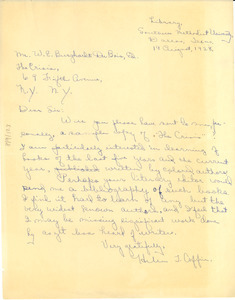 Library,
Southern Methodist University
Dallas, Texas
14 August, 1928
Mr. W. E. Burghardt Du Bois, Ed.
The Crisis,
69 Fifth Avenue,
N.Y. N.Y.
Dear Sir:
Will you please have sent to me, per-
sonally, a sample copy of "The Crisis"
I am particularly interested in learning of
books of the last few years and the current
year, published written by colored authors.
Perhaps your literary editor could
send me a bibliography of such books.
I find it hard to learn of any but the
very widest known authors, and I feel that
I may be missing significant work done
by as yet less heard of writers.
Very gratefully,
Helen T. Coffin